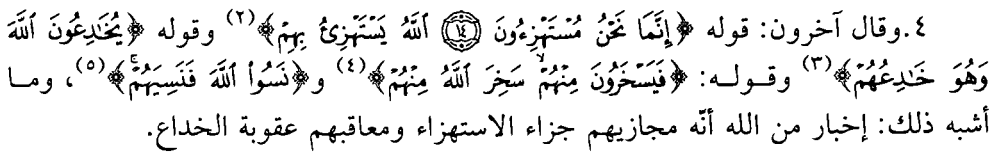 ٤.وقال آخرون: قوله ﴿إِنَّمَا نَحْنُ مُسْتَهْزِءُونَ ۝١٤ ٱللَّهُ يَسْتَهْزِئُ بِهِمْ﴾(٢) وقوله ﴿يُخَٰدِعُونَ ٱللَّهَ
وَهُوَ خَٰدِعُهُمْ﴾(٣) وقوله: ﴿فَيَسْخَرُونَ مِنْهُمْۙ سَخِرَ ٱللَّهُ مِنْهُمْ﴾(٤) و﴿نَسُوا۟ ٱللَّهَ فَنَسِيَهُمْۚ﴾(٥)، وما
أشبه ذلك: إخبار من الله أنّه مجازيهم جزاء الاستهزاء ومعاقبهم عقوبة الخداع.